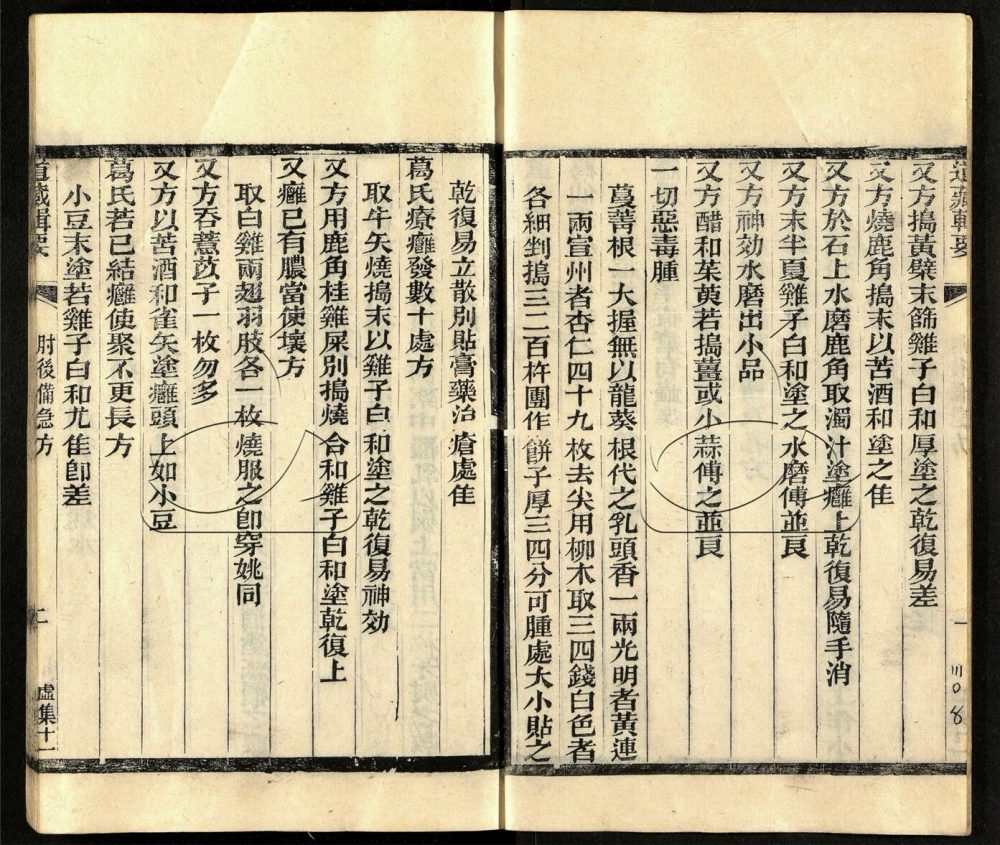 道藏輯要
又方搗黃檗末篩雞子白和厚塗之乾復易差
又方燒鹿角搗末以苦酒和塗之佳
又方於石上水磨鹿角取濁汁塗癰上乾復易隨手消
又方末半夏雞子白和塗之水磨傅並良
又方神効水磨出小品
又方醋和茱萸若搗薑或小蒜傅之並良
一切惡毒腫
蔓菁根一大握無以龍葵根代之乳頭香一兩光明者黃連
一兩宣州者杏仁四十九枚去尖用柳木取三四錢白色者
各細剉搗三二百杵團作餅子厚三四分可腫處大小貼之
乾復易立散別貼膏藥治瘡處佳
葛氏療癰發數十處方
取牛矢燒搗末以雞子白和塗之乾復易神効
又方用鹿角桂雞屎別搗燒合和雞子白和塗乾復上
又癰已有膿當使壞方
取白雞兩翅羽肢各一枚燒服之卽穿姚同
又方吞薏苡子一枚勿多
又方以苦酒和雀矢塗癰頭上如小豆
葛氏若已結癰使聚不更長方
小豆末塗若雞子白和尤佳卽差
道藏輯要 肘後備急方 二 虛集十一
一
川〇8